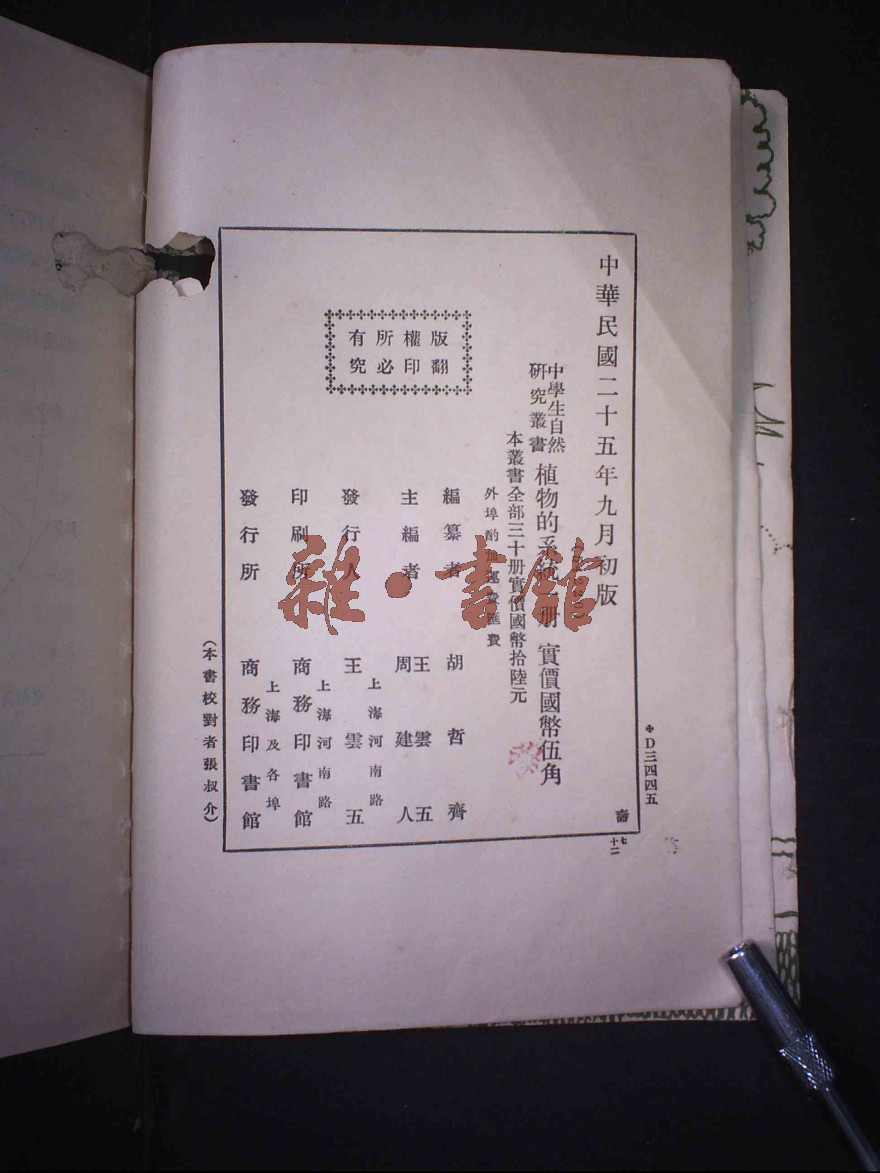 中華民國二十五年九月初版
中學生自然
研究叢書
植物的系統一册 實價國幣伍角
本叢書全部三十册實價國幣拾陸元
外埠酌加運費匯費
版權所有
翻印必究
編纂者 胡哲齊
主編者 王雲五
周建人
發行人 王雲五
上海河南路
印刷所 商務印書館
上海河南路
發行所 商務印書館
上海及各埠
(本書校對者張叔介)
D三四四五
七
十二
雜·書館